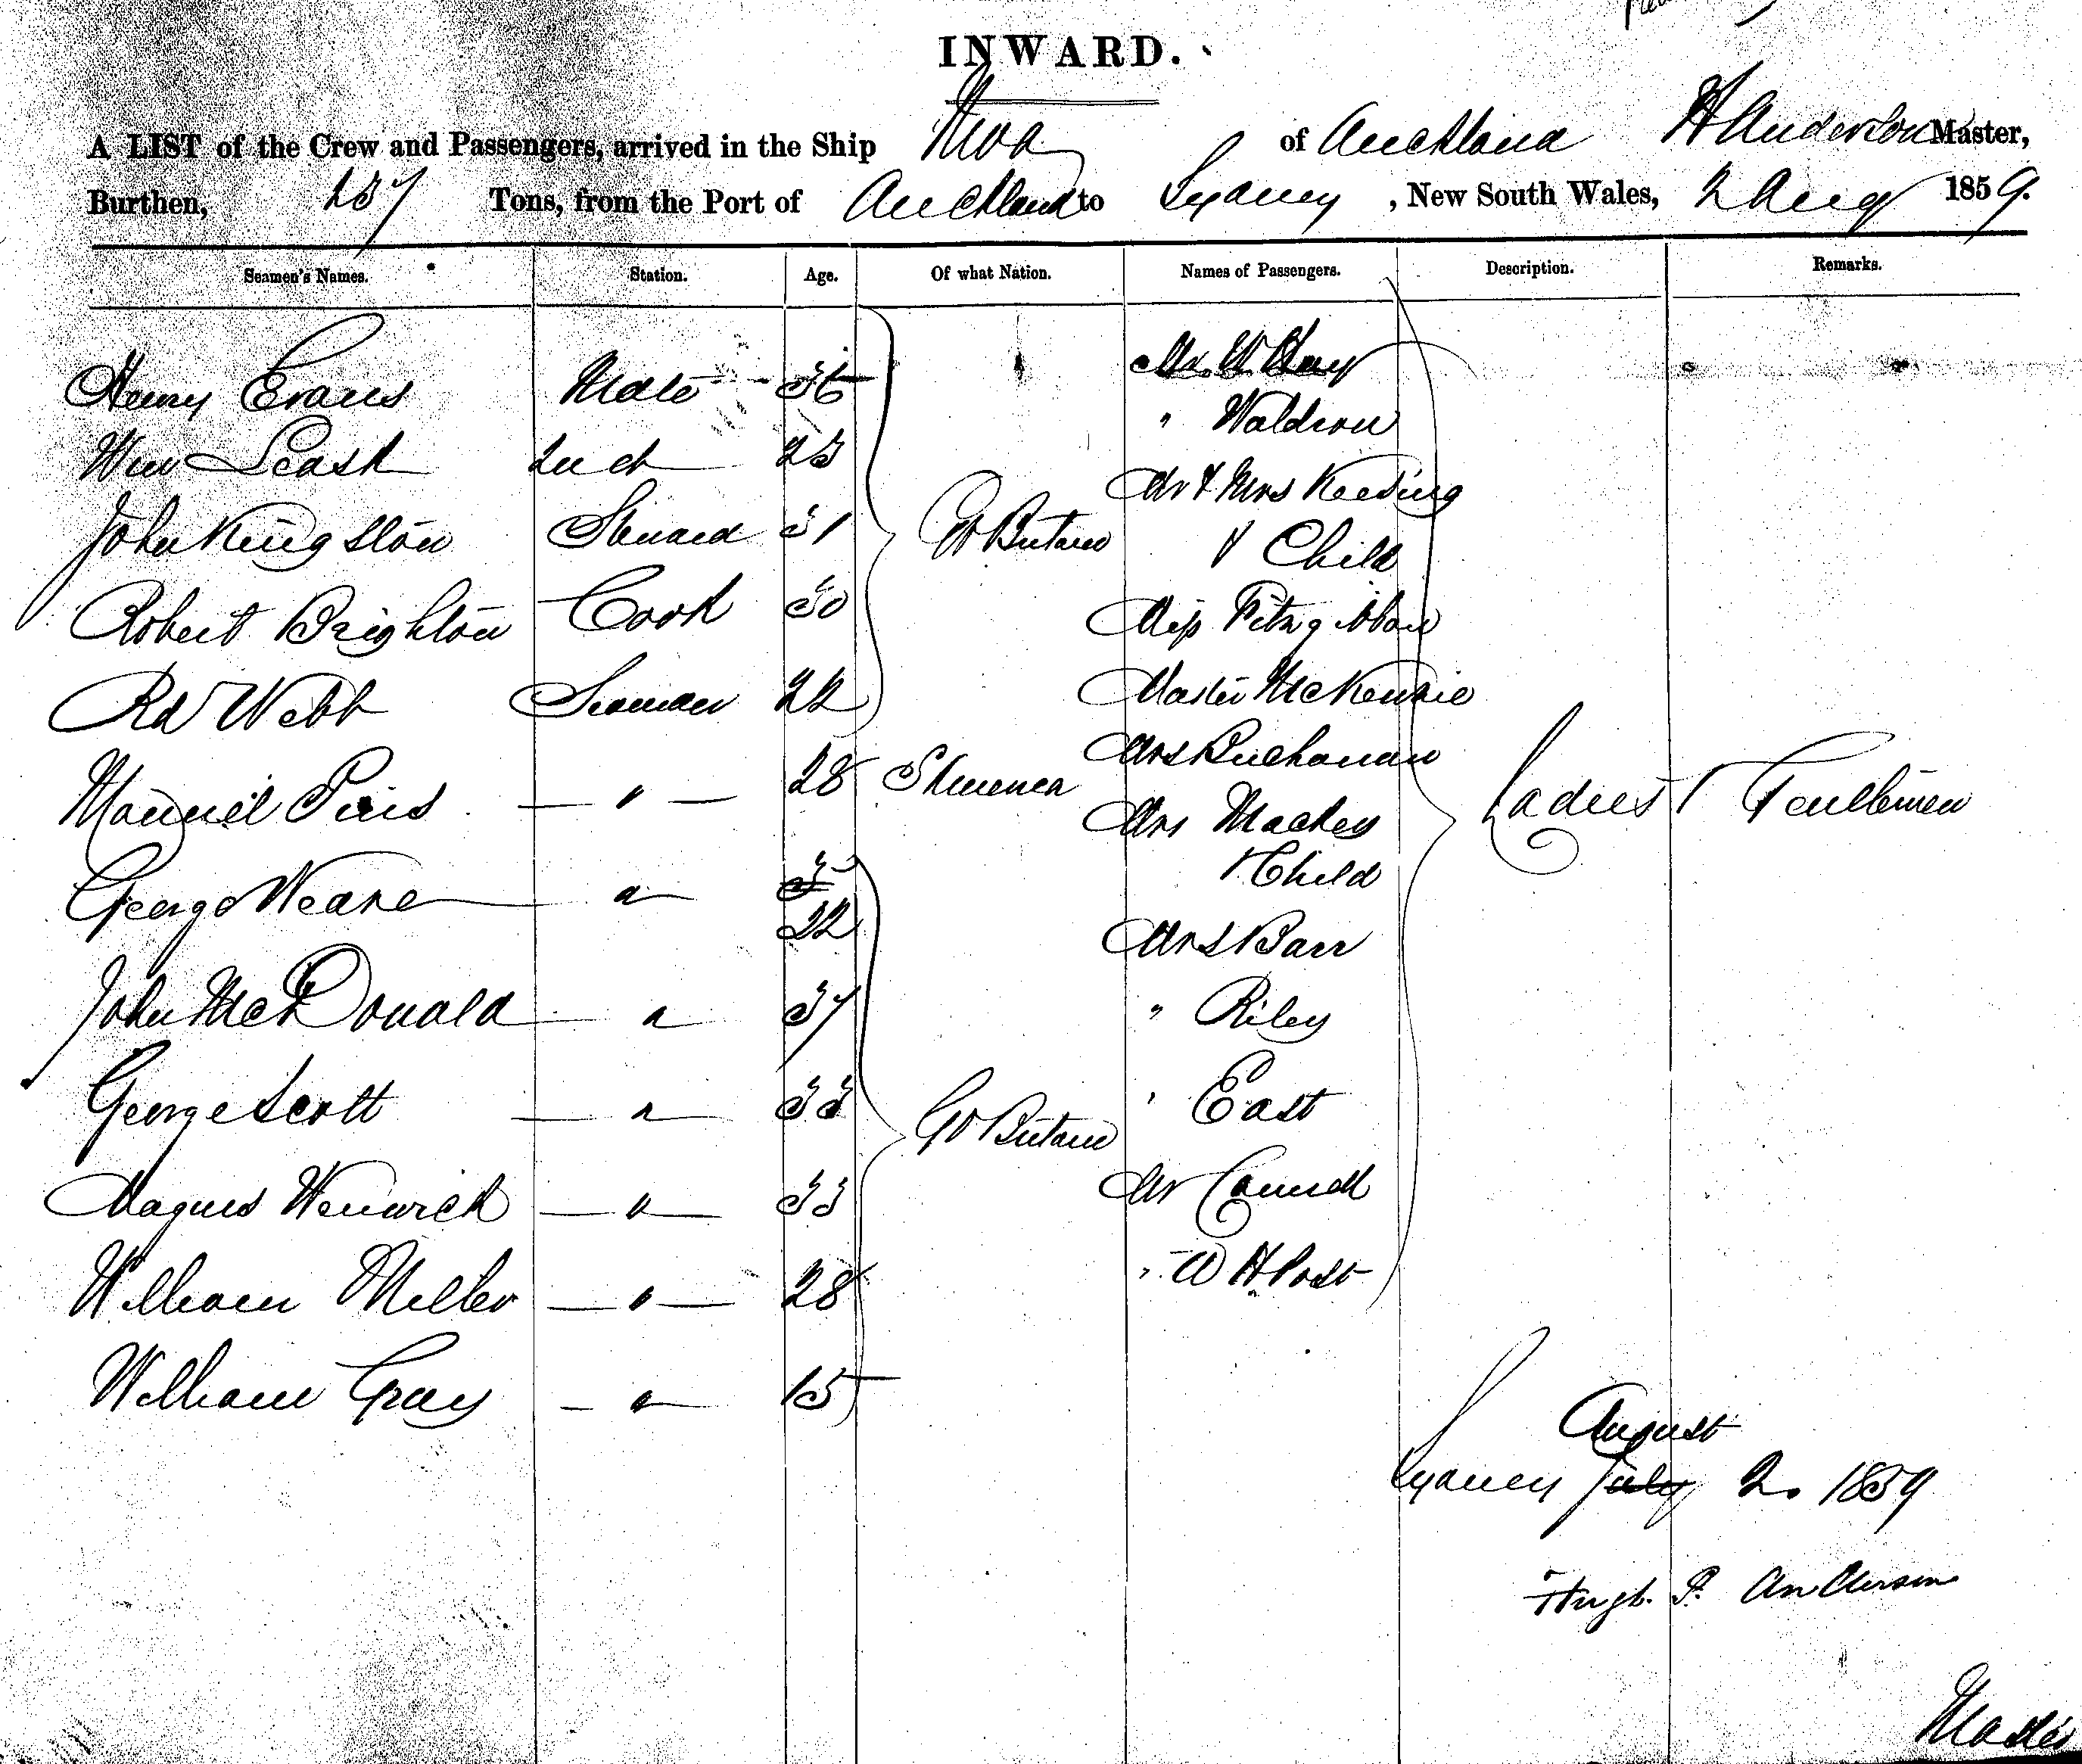 INWARD.
A LIST of the Crew and Passengers, arrived in the Ship Moa of Auckland H Anderson Master,
Burthen, 237 Tons, from the Port of Auckland to Sydney, New South Wales, 2 Aug 1859.
Seamen's Names. Station. Age. Of what Nation. Names of Passengers. Description. Remarks.
Henry Evans Mate 36 Mr. W. Hay
" Waldron
Wm Leask 23
Mr & Mrs Keesing
John Kingston Steward 31 Gt Britain & Child
Robert Brighton Cook 30 Miss Fitzgibbon
Rd Webb Seaman 22 Master McKenzie
Mrs Buchanan
Manuel " 28 S America Mrs Mackey Ladies & Gentlemen
& Child
George Weare " 3
22 Mrs Barr
John McDonald " 37 " Riley
George Scott " 33 Gt Britain " East
Magnus Wenwick " 33 Mr
William Miller " 28 " W H Post
William Gray " 15
August
Sydney July 2. 1859
Hugh F. Anderson
Master